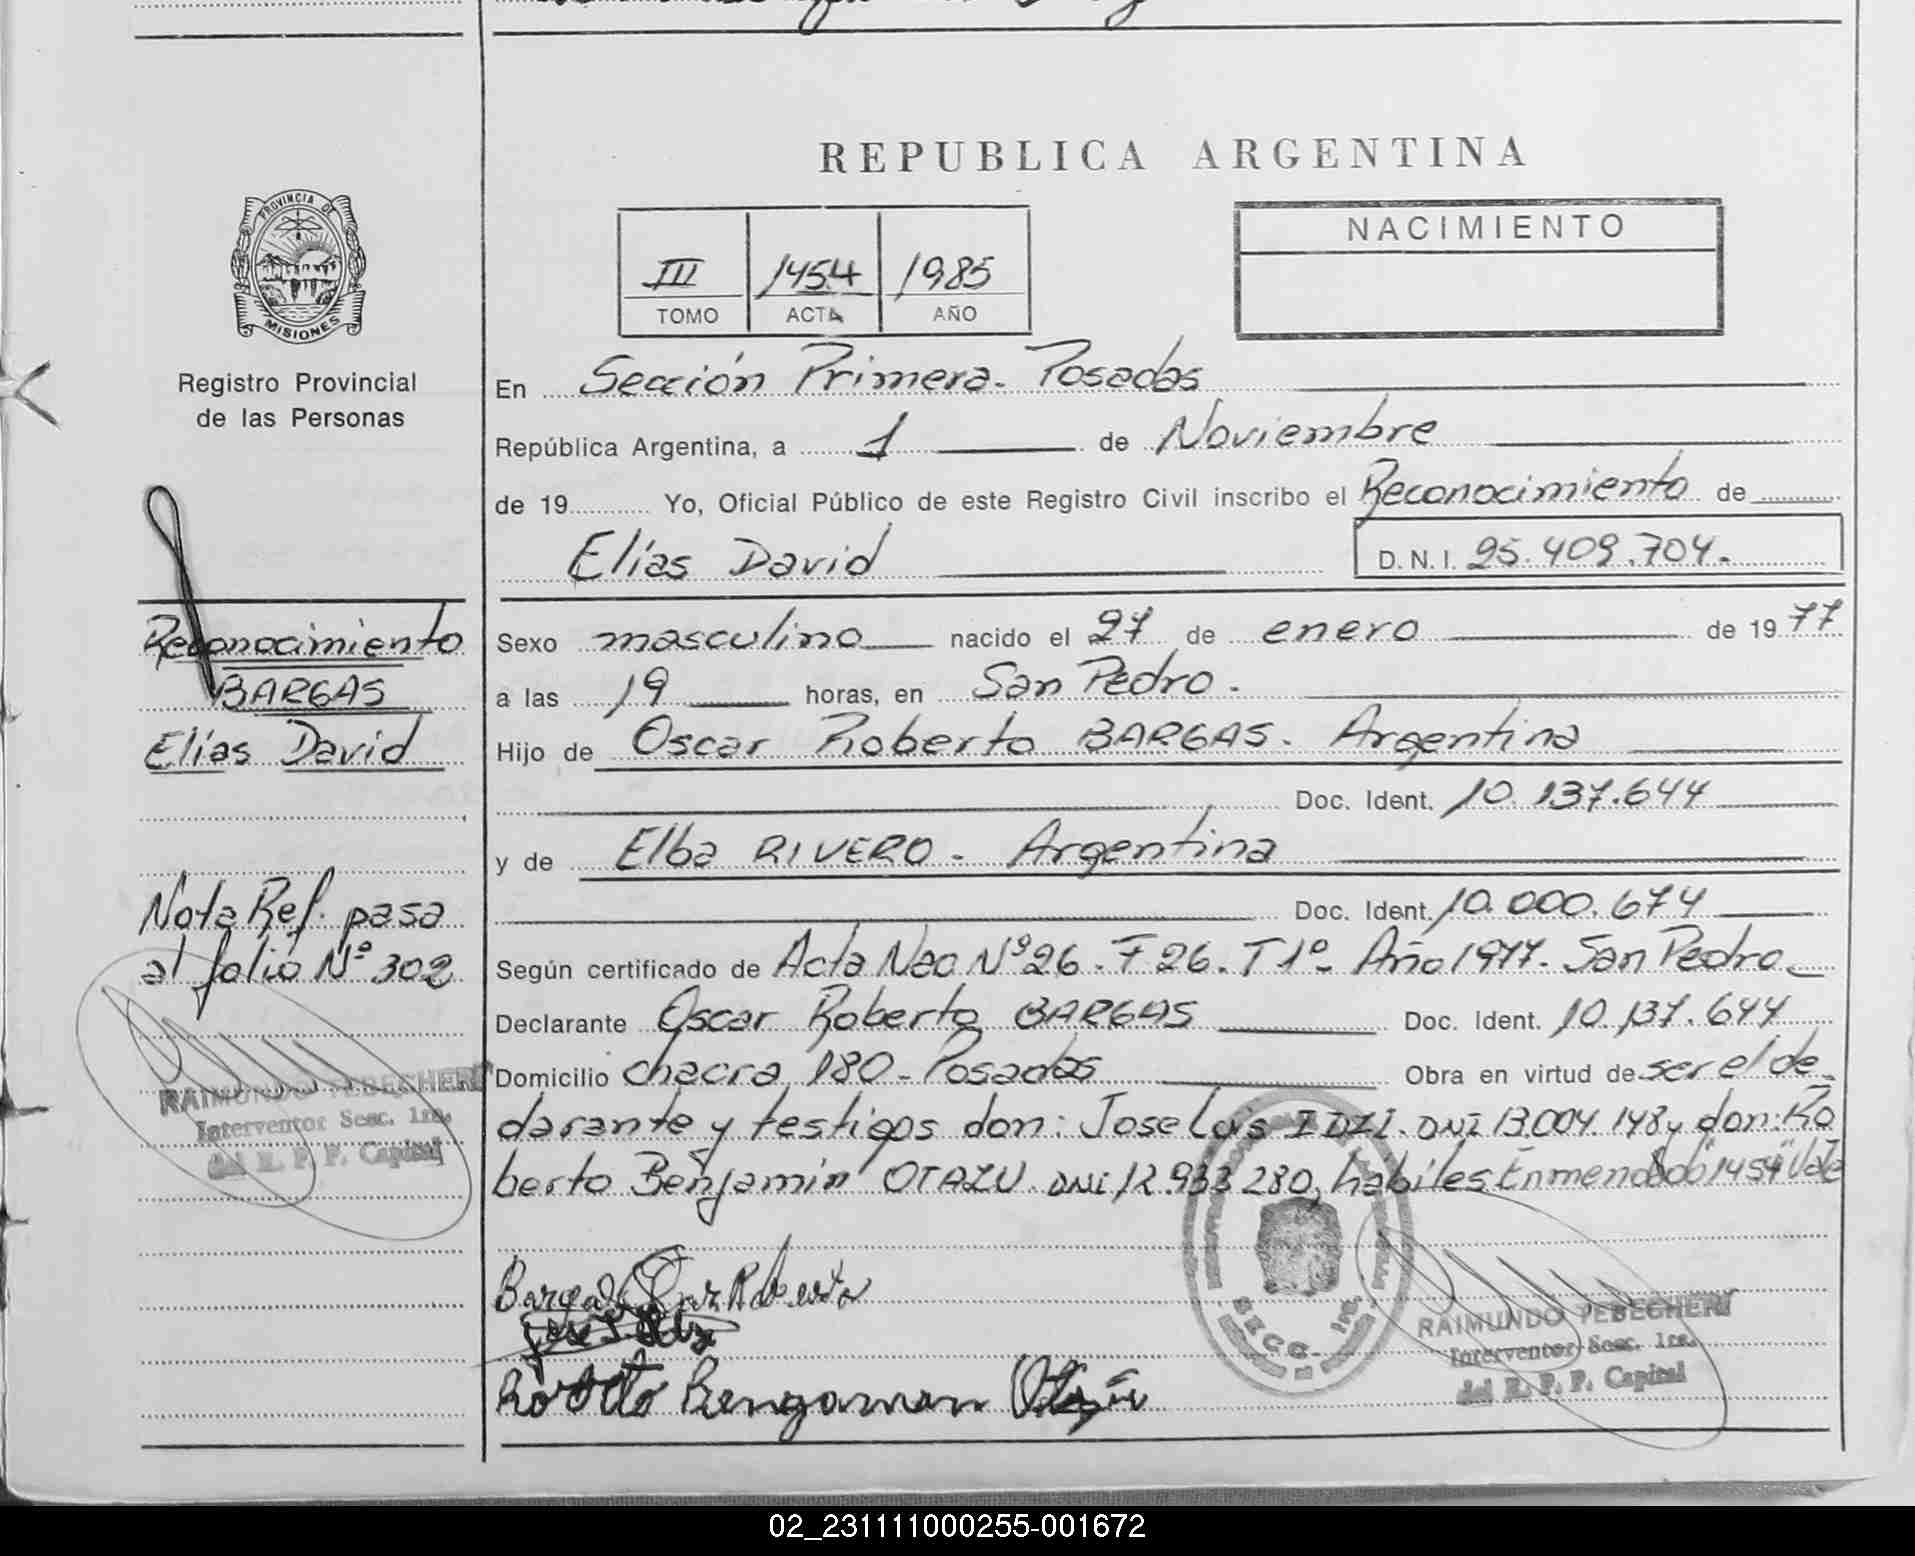 REPUBLICA ARGENTINA
PROVINCIA DE
MISIONES
Registro Provincial
de las Personas
III 1454 1985
TOMO ACTA AÑO
NACIMIENTO
En Sección Primera. Posadas
República Argentina, a 1 de Noviembre
de 19 Yo, Oficial Público de este Registro Civil inscribo el Reconocimiento de
Elías David D.N.I. 25.409.704.
Reconocimiento
BARGAS
Elías David
Nota Ref. pasa
al folio Nº 302
RAIMUNDO TEBECHERI
Interventor Secc. 1ra.
del R. P. P. Capital
Sexo masculino nacido el 27 de enero de 1977
a las 19 horas, en San Pedro.
Hijo de Oscar Roberto BARGAS. Argentina
Doc. Ident. 10.137.644
y de Elba RIVERO. Argentina
Doc. Ident. 10.000.674
Según certificado de Acta Nac Nº 26. F 26. T 1º. Año 1977. San Pedro
Declarante Oscar Roberto BARGAS Doc. Ident. 10.137.644
Domicilio chacra 180 - Posadas Obra en virtud de ser el de
clarante y testigos don: Jose Luis DNI 13.004.148 y don: Ro
berto Benjamin OTAZU DNI 12.933.280, habiles Enmendado "1454" Vale
Bargas Oscar Roberto
Roberto Bengaman Otazu
SECC. 1ra.
RAIMUNDO TEBECHERI
Interventor Secc. 1ra.
del R. P. P. Capital
02_231111000255-001672